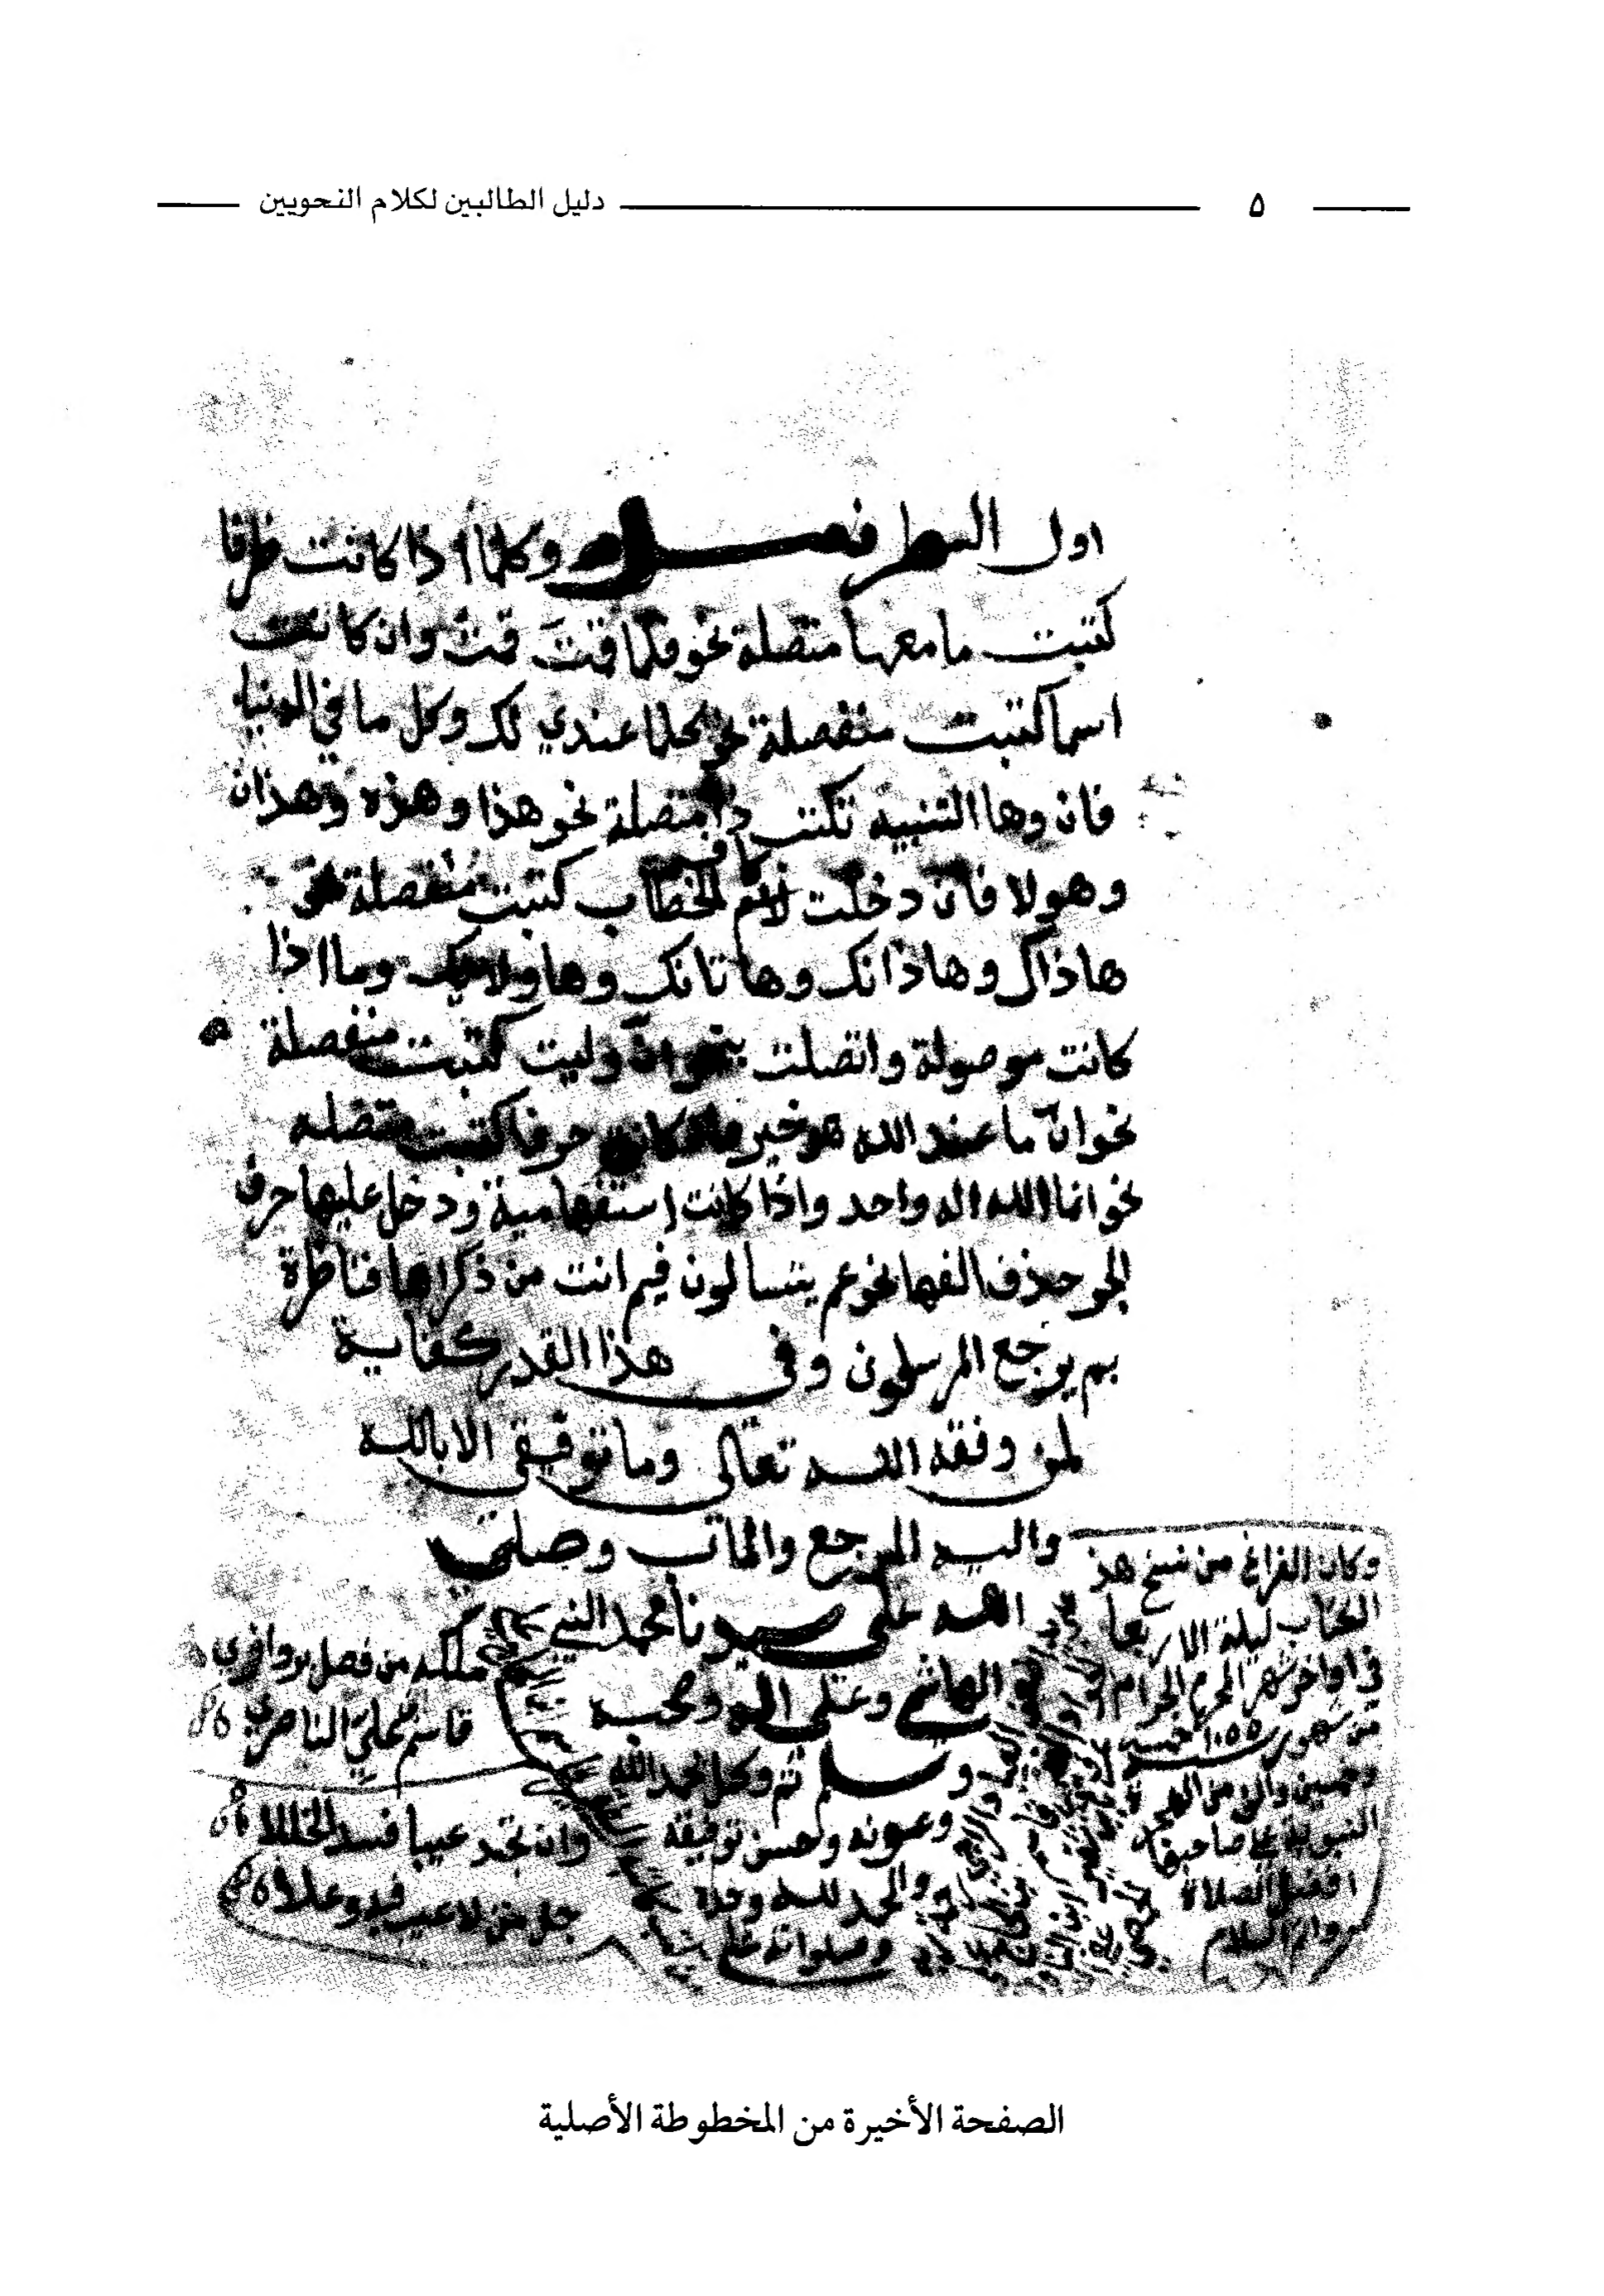 دليل الطالبين لكلام النحويين ٥
اول السطر فصل وكلما اذا كانت ظرفا
كتبت ما معها متصلة نحو كلما قمتَ قمتُ وان كانت
اسما كتبت منفصلة نحو كلما عندي لك وكل ما في الدنيا
فان وها التنبيه تكتب متصلة نحو هذا وهذه وهذان
وهولا فان دخلت الخطاب كتبت منفصلة نحو
هاذاك وهاذانك وهاتانك وهاولائك وما اذا
كانت موصولة واتصلت بنحو ان وليت كتبت منفصلة
نحو انّ ما عند الله هو خير فان كانت حرفا كتبت متصله
نحو انما الله اله واحد واذا كانت إستفهامية ودخل عليها حرف
الجر حذف الفها نحو عم يتسالون فيم انت من ذكراها فناظرة
بم يرجع المرسلون وفي هذا القدر كفاية
لمن وفقه الله تعالى وما توفيقي الا بالله
واليه المرجع والمآب وصلى
الله على سيدنا محمد النبي
الهاشمي وعلى اله وصحبه
وسلم تم وكمل بحمد الله
وعونه وحسن توفيقه
والحمد لله وحده
وصلواته على
وكان الفراغ من نسخ هذ
الكتاب ليلة الاربعا
في اواخر شهر المحرم الحرام
من شهور سنة ١٠٥٥ خمسة
وخمسين والف من الهجرة
النبوية على صاحبها
افضل الصلاة
والسلام
ملكه من فضل
قاسم الناصري
وان تجد عيبا فسد الخللا
جل من لا عيب فيه وعلا
الصفحة الأخيرة من المخطوطة الأصلية